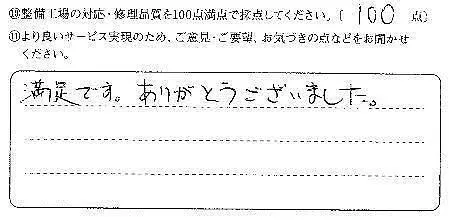 ⑩整備工場の対応・修理品質を100点満点で採点してください。( 100 点)
⑪より良いサービス実現のため、ご意見・ご要望、お気づきの点などをお聞かせ
ください。
満足です。ありがとうございました。